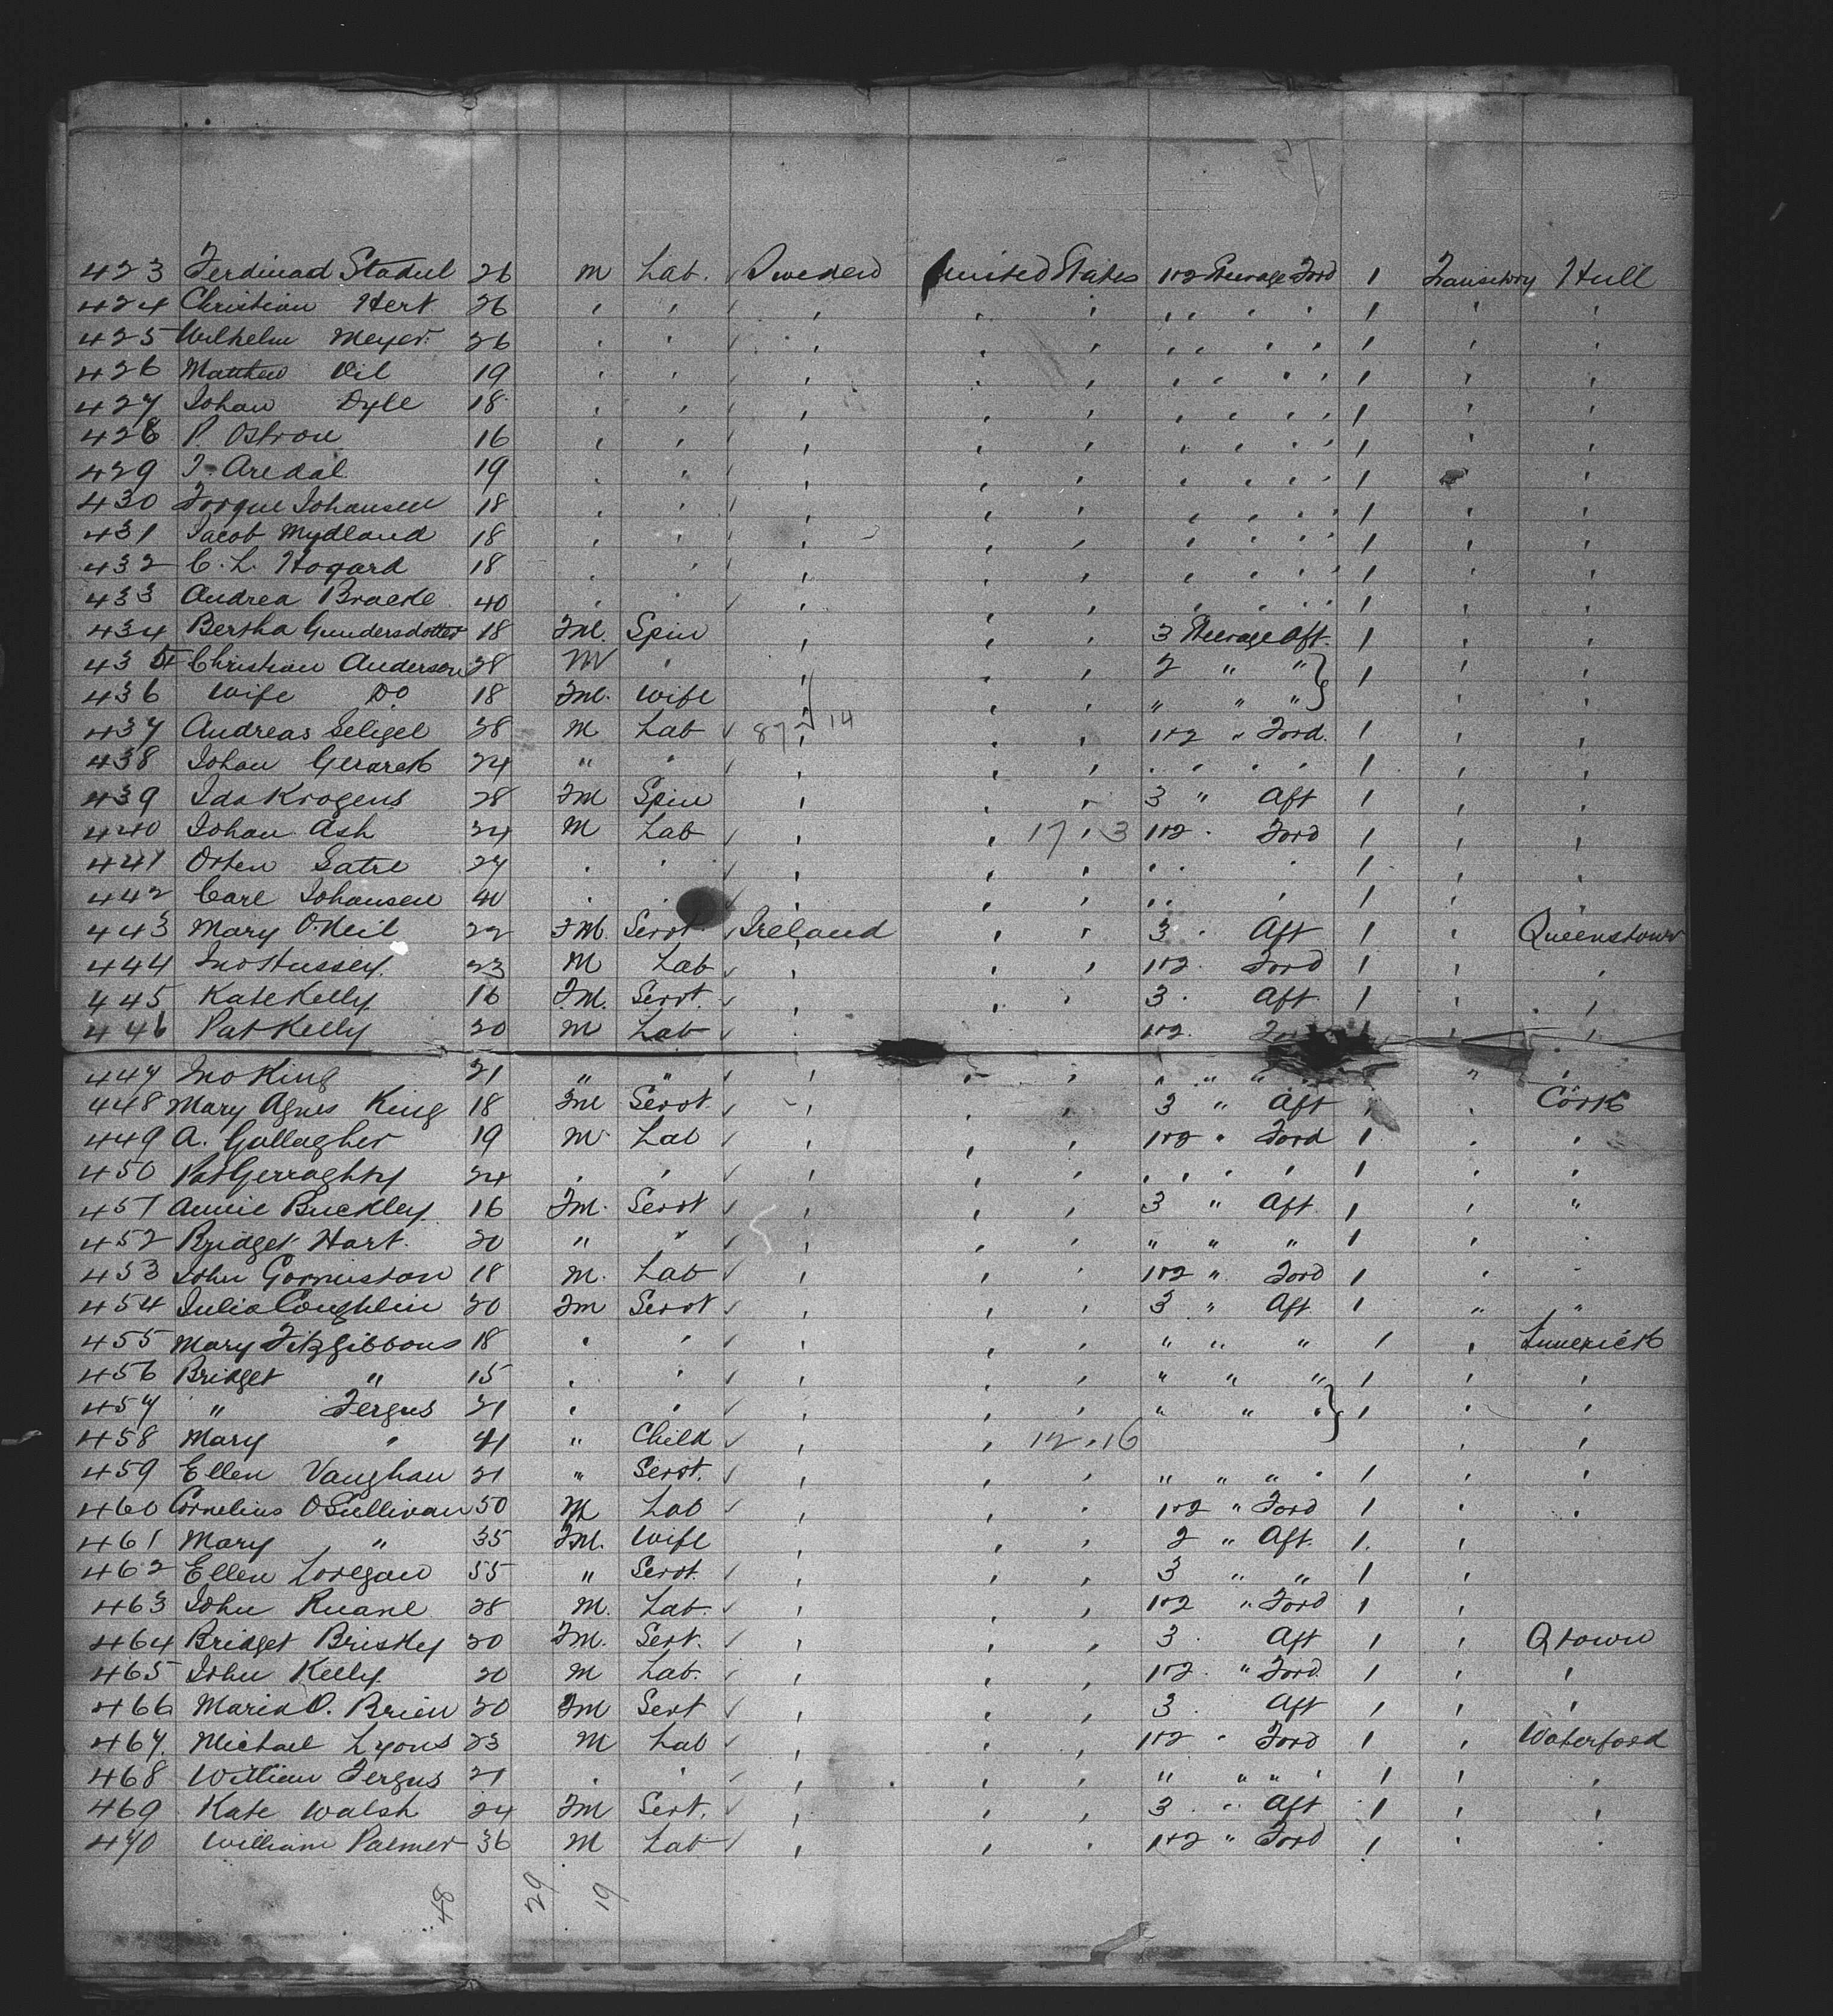 423 Ferdinad Stadul 26 M Lab. Sweden United States 1+2 Steerage Ford 1 Transitory Hull
424 Christian Hert 26 " " " " " " " " " 1 " "
425 Wilhelm Meyer 26 " " " " " " " " " 1 " "
426 Matthew Oil 19 " " " " " " " " " 1 " "
427 Johan Dyle 18 " " " " " " " " " 1 " "
428 P. Ostron 16 " " " " " " " " " 1 " "
429 J. Aredal 19 " " " " " " " " " 1 "
430 Johansen 18 " " " " " " " " " 1 " "
431 Jacob Mydland 18 " " " " " " " " " 1 " "
432 C. L. Hogard 18 " " " " " " " " " 1 " "
433 Andrea Braekle 40 " " " " " " " " " 1 " "
434 Bertha Gundersdotter 18 FM. Spin " " " 3 Steerage Aft. 1 " "
435 Christian Anderson 28 M " " " " 2 " " 1 " "
436 Wife Do 18 FM. Wife " " " " " " " "
437 Andreas Seligel 38 M Lab 87 14 " " " 1+2 " Ford. 1 " "
438 Johan Gerareb 24 " " " " " " " " " 1 " "
439 Ida Krogens 28 FM Spin " " " 3 " Aft 1 " "
440 Johan Ash 34 M Lab " " 17 " 3 1+2 " Ford 1 " "
441 Orten Satre 27 " " " " " " " " 1 " "
442 Carl Johansen 40 " " " " " " " " 1 " "
443 Mary O'Neil 22 FM. Servt Ireland " " 3 " Aft 1 " Queenstown
444 Jno Hussey 23 M Lab " " " 1+2 " Ford 1 " "
445 Kate Kelly 16 FM. Servt. " " " 3 " Aft 1 " "
446 Pat Kelly 20 M Lab " 1+2 " " "
447 Jno King 21 " " " " " " " " " "
448 Mary Agnes King 18 FM Servt. " " " 3 " Aft 1 " Cork
449 A. Gallagher 19 M Lab " " " 1+2 " Ford 1 " "
450 Pat Gerraghty 24 " " " " " " " " " 1 " "
451 Annie Buckley 16 FM. Servt " " " 3 " Aft 1 " "
452 Bridget Hart 20 " " " " " " " " 1 " "
453 John Gormiston 18 M. Lab " " " 1+2 " Ford 1 " "
454 Julia Coughlin 20 FM Servt " " " 3 " Aft 1 " "
455 Mary Fitzgibbons 18 " " " " " " " " 1 " Limerick
456 Bridget " 15 " " " " " " " " 1 " "
457 " Fergus 21 " " " " " " " " 1 " "
458 Mary " " Child " " 12 " 16 " "
459 Ellen Vaughan 21 " Servt. " " " " " " " 1 " "
460 Cornelius O'Sullivan 50 M Lab " " " 1+2 " Ford 1 " "
461 Mary " 35 FM. Wife " " " 2 " Aft. 1 "
462 Ellen Loregan 55 " Servt. " " " 3 " " 1 "
463 John Ruane 28 M. Lab. " " " 1+2 " Ford 1 "
464 Bridget Brisky 20 FM. Sert. " " " 3 " Aft 1 " Qtown
465 John Kelly 20 M Lab. " " " 1+2 " Ford 1 " "
466 Maria O. Brien 20 FM Sert " " " 3 " Aft 1 " "
467. Michael Lyons 23 M Lab " " " 1+2 " Ford 1 " Waterford
468 William Fergus 21 " " " " " " " " " 1 " "
469 Kate Walsh 24 FM Sert. " " " 3 " Aft 1 " "
470 William Palmer 36 M Lab " " " 1+2 " Ford 1 " "
48 29 19